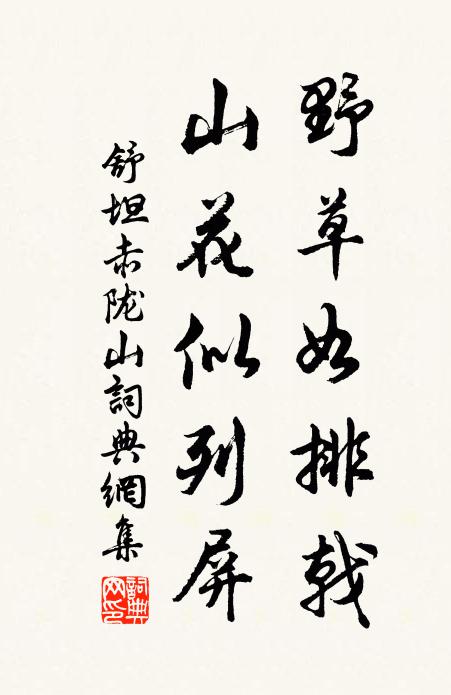 野草如排戟
山花似列屏
舒坦赤陇山詞典網集
詞典
网印